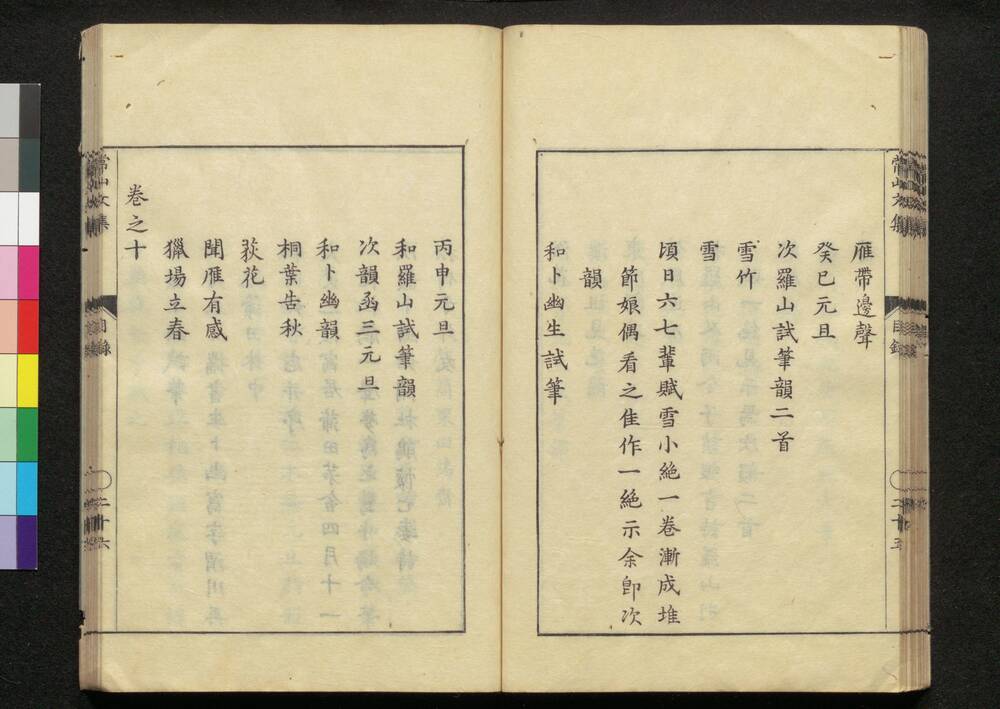 雁帶邊聲
癸巳元旦
次羅山試筆韻二首
雪竹
雪
頃日六七輩賦雪小絶一卷漸成堆
節娘偶看之佳作一絶示余卽次
韻
和卜幽生試筆
丙申元旦
和羅山試筆韻
次韻函三元旦
和卜幽韻
桐葉告秋
荻花
聞雁有感
獵場立春
卷之十
常山文集
目錄
二十五
常山文集
目錄
二十六